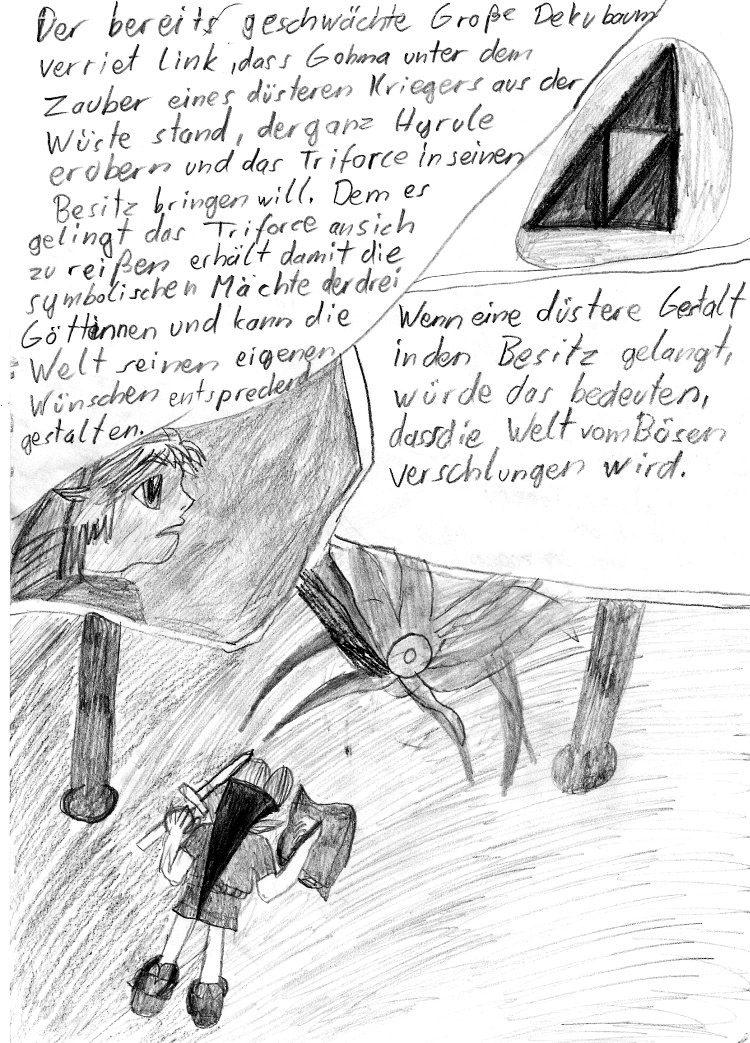 Der bereits geschwächte Große Dekubaum
verriet Link, dass Gohma unter dem
Zauber eines düsteren Kriegers aus der
Wüste stand, der ganz Hyrule
erobern und das Triforce in seinen
Besitz bringen will. Dem es
gelingt das Triforce an sich
zu reißen erhält damit die
symbolischen Mächte der drei
Göttinnen und kann die
Welt seinen eigenen
Wünschen entsprechend
gestalten.
Wenn eine düstere Gestalt
in den Besitz gelangt,
würde das bedeuten,
dass die Welt vom Bösen
verschlungen wird.